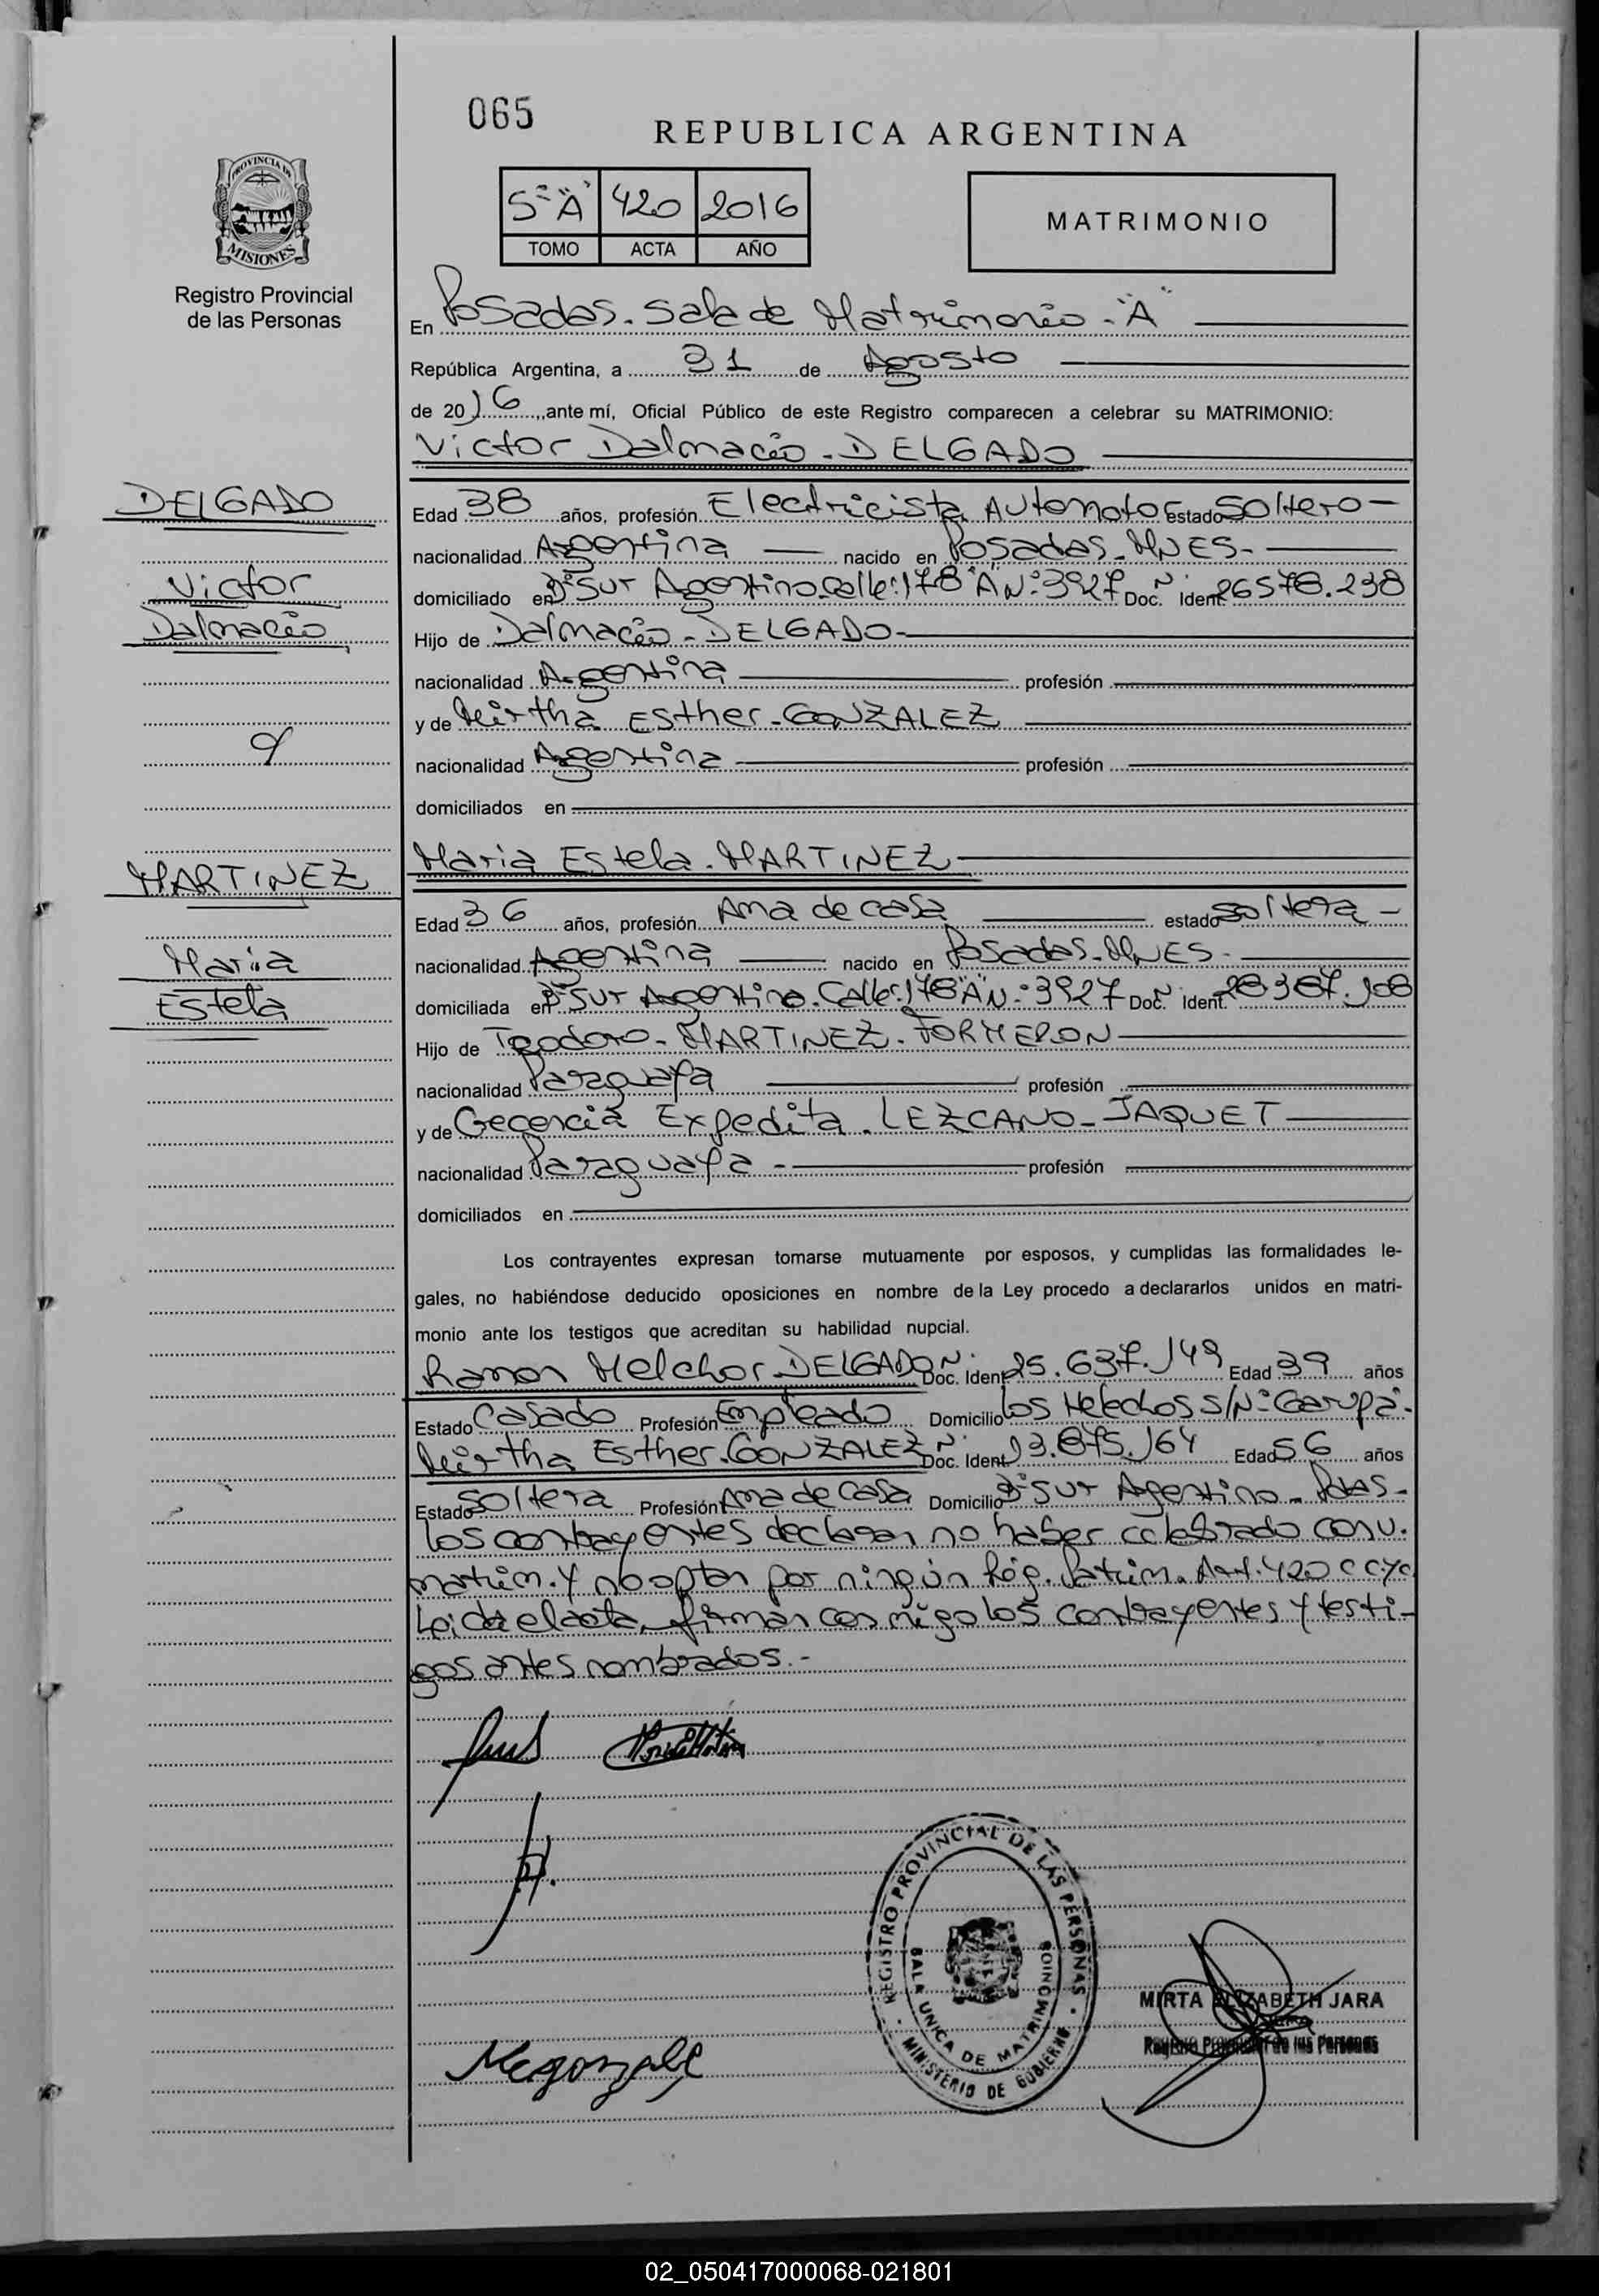 065
REPUBLICA ARGENTINA
PROVINCIA DE
MISIONES
Registro Provincial
de las Personas
5º "A" 420 2016
TOMO ACTA AÑO
MATRIMONIO
En Posadas. Sala de Matrimonio - "A"
República Argentina, a 31 de Agosto
de 2016, ante mí, Oficial Público de este Registro comparecen a celebrar su MATRIMONIO:
Victor Dalmacio - DELGADO
DELGADO
Victor
Dalmacio
y
MARTINEZ
Maria
Estela
Edad 38 años, profesión Electricista Automotor estado Soltero -
nacionalidad Argentina nacido en Posadas - MNES -
domiciliado en Bº Sur Argentino. Calle: 178 "A" Nº 3927 Doc. Ident. Nº 26578.238
Hijo de Dalmacio - DELGADO -
nacionalidad Argentina profesión
y de Mirtha Esther - GONZALEZ
nacionalidad Argentina profesión
domiciliados en
Maria Estela. MARTINEZ
Edad 36 años, profesión Ama de casa estado soltera -
nacionalidad Argentina nacido en Posadas - MNES -
domiciliada en Bº Sur Argentino. Calle: 178 "A" Nº 3927 Doc. Ident. Nº 28367.108
Hijo de Teodoro - MARTINEZ - FORMERON
nacionalidad Paraguaya profesión
y de Gecencia Expedita. LEZCANO - JAQUET
nacionalidad Paraguaya - profesión
domiciliados en
Los contrayentes expresan tomarse mutuamente por esposos, y cumplidas las formalidades le-
gales, no habiéndose deducido oposiciones en nombre de la Ley procedo a declararlos unidos en matri-
monio ante los testigos que acreditan su habilidad nupcial.
Ramon Melchor. DELGADO Doc. Ident. Nº 25.637.149 Edad 39 años
Estado Casado Profesión Empleado Domicilio Los Helechos S/Nº Garupá.
Mirtha Esther. GONZALEZ Doc. Ident. Nº 13.875.164 Edad 56 años
Estado Soltera Profesión Ama de casa Domicilio Bº Sur Argentino - Pdas -
Los contrayentes declaran no haber celebrado conv.
matrim. y no optan por ningún Rég. Patrim. Art. 420 CCYC
Leida el acta, firman conmigo los contrayentes y testi-
gos antes nombrados. -
Megonzalez
REGISTRO PROVINCIAL DE LAS PERSONAS
SALA UNICA DE MATRIMONIOS
MINISTERIO DE GOBIERNO
MIRTA ELIZABETH JARA
Registro Provincial de las Personas
02_050417000068-021801